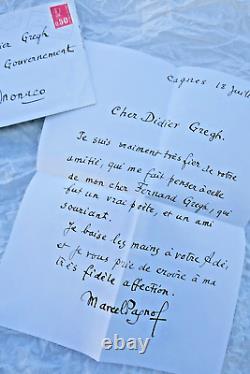 Didier Gregh
Gouvernement
Monaco
0.50
Cagnes 12 Juill
Cher Didier Gregh.
Je suis vraiment très fier de votre
amitié, qui me fait penser à celle
de mon cher Fernand Gregh, qui
fut un vrai poète, et un ami
souriant.
Je baise les mains à votre Adé,
et je vous prie de croire à ma
très fidèle affection.
Marcel Pagnol